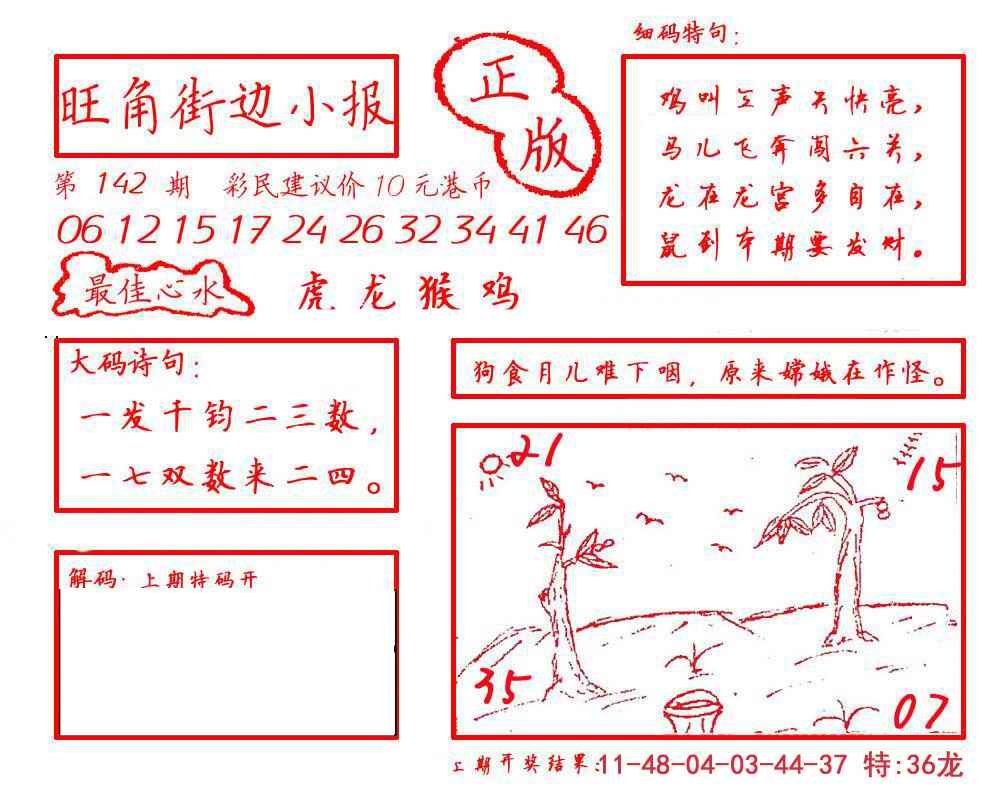 旺角街边小报
正版
第 142 期 彩民建议价10元港币
06 12 15 17 24 26 32 34 41 46
最佳心水
虎.龙猴鸡
细码特句:
鸡叫三声天快亮,
马儿飞奔闯六关,
龙在龙宫多自在,
鼠到本期要发财。
大码诗句:
一发千钧二三数,
一七双数来二四。
狗食月儿难下咽,原来嫦娥在作怪。
21
15
35
07
解码·上期特码开
上期开奖结果:11-48-04-03-44-37 特:36龙